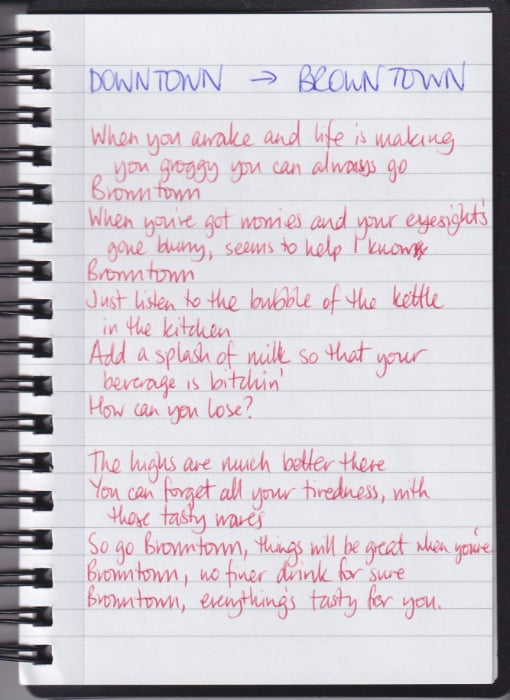 DOWNTOWN → BROWNTOWN
When you awake and life is making
you groggy you can always go
Browntown
When you've got worries and your eyesight's
gone blurry, seems to help I know
Browntown
Just listen to the bubble of the kettle
in the kitchen
Add a splash of milk so that your
beverage is bitchin'
How can you lose?
The highs are much better there
You can forget all your tiredness, with
those tasty wares
So go Browntown, things will be great when you're
Browntown, no finer drink for sure
Browntown, everything's tasty for you.